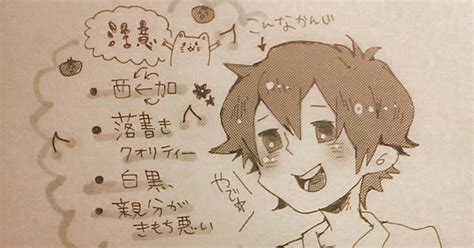 注意
こんなかんじ
・西←加
・落書き
クオリティー
・白黒、
・親分が
きもち悪い